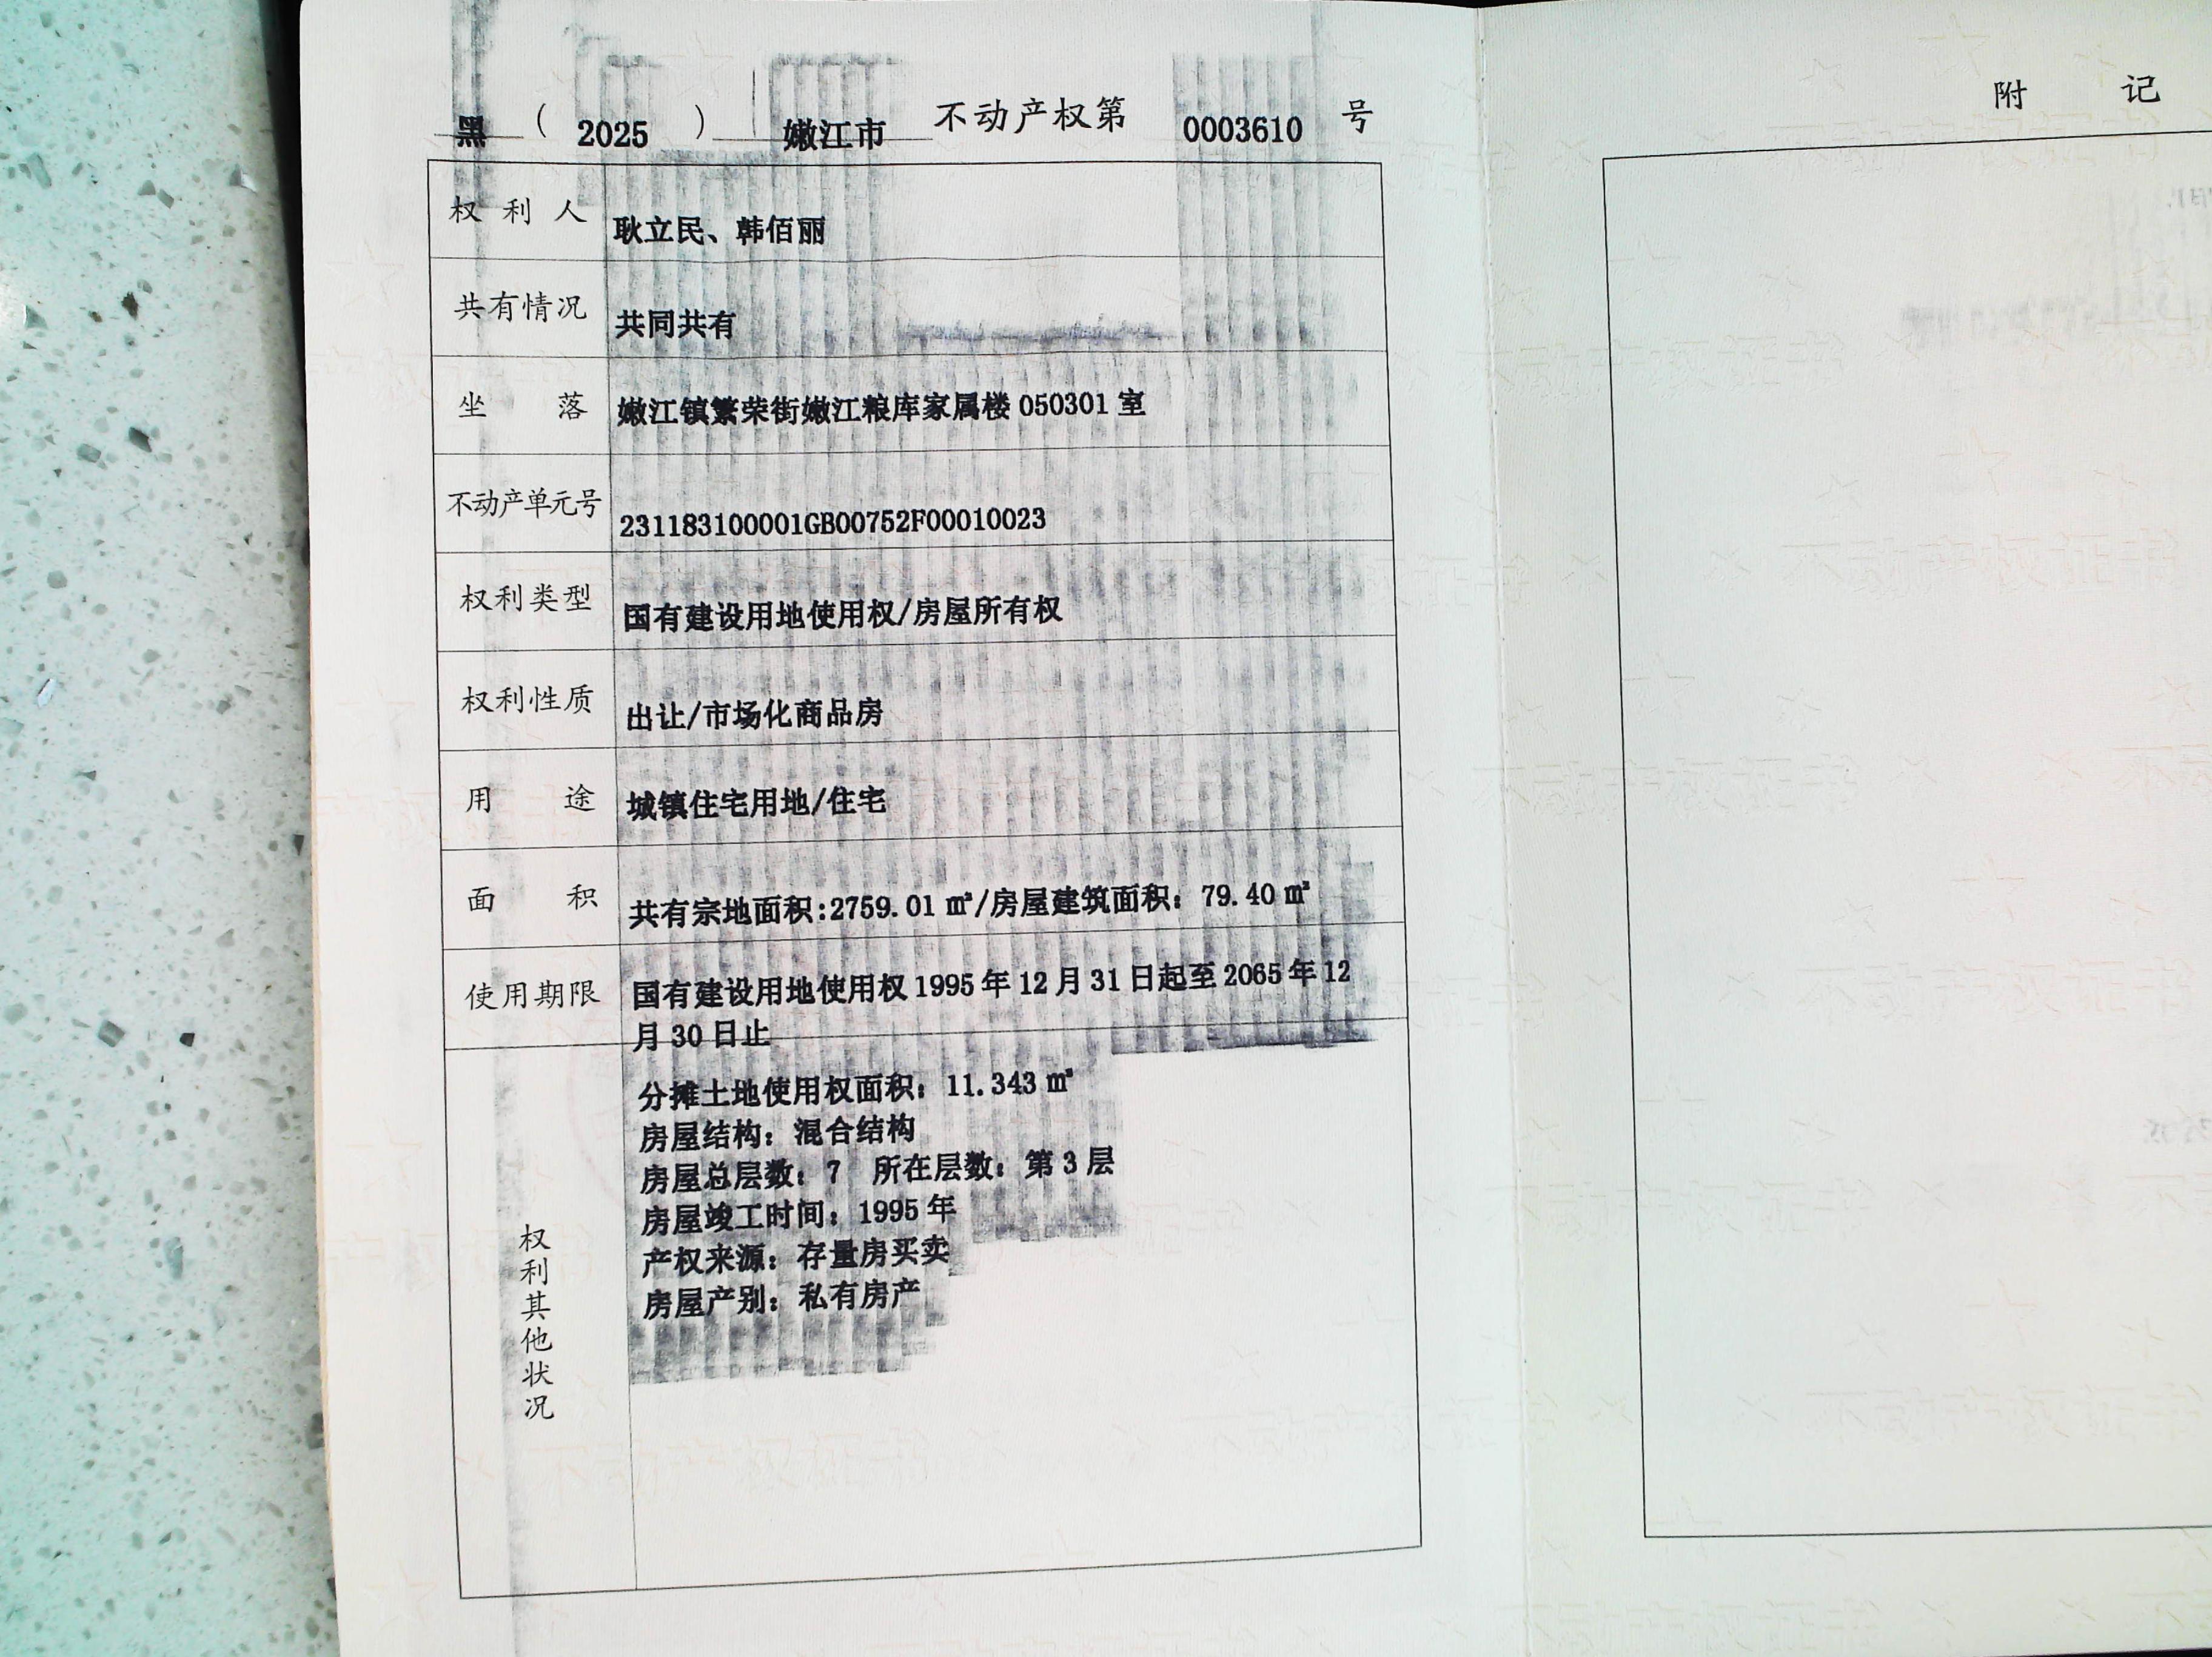 黑（2025）嫩江市不动产权第0003610号
权利人 耿立民、韩佰丽
共有情况 共同共有
坐落 嫩江镇繁荣街嫩江粮库家属楼050301室
不动产单元号 231183100001GB00752F00010023
权利类型 国有建设用地使用权/房屋所有权
权利性质 出让/市场化商品房
用途 城镇住宅用地/住宅
面积 共有宗地面积:2759.01㎡/房屋建筑面积：79.40㎡
使用期限 国有建设用地使用权1995年12月31日起至2065年12
月30日止
权利其他状况
分摊土地使用权面积：11.343㎡
房屋结构：混合结构
房屋总层数：7 所在层数：第3层
房屋竣工时间：1995年
产权来源：存量房买卖
房屋产别：私有房产
附记